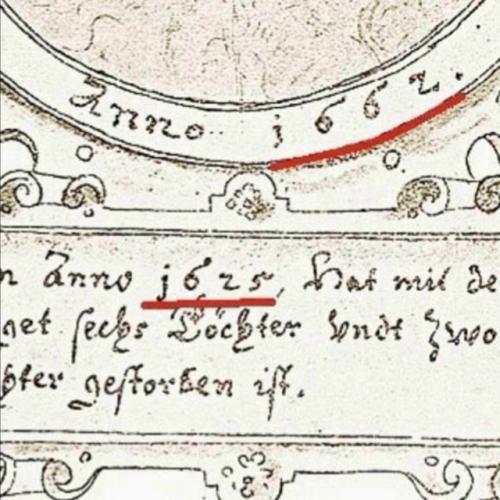 Anno 1662.
n Anno 1625, Hat mit de
get sechs Döchter Vndt Zwo
hter gestorben ist.